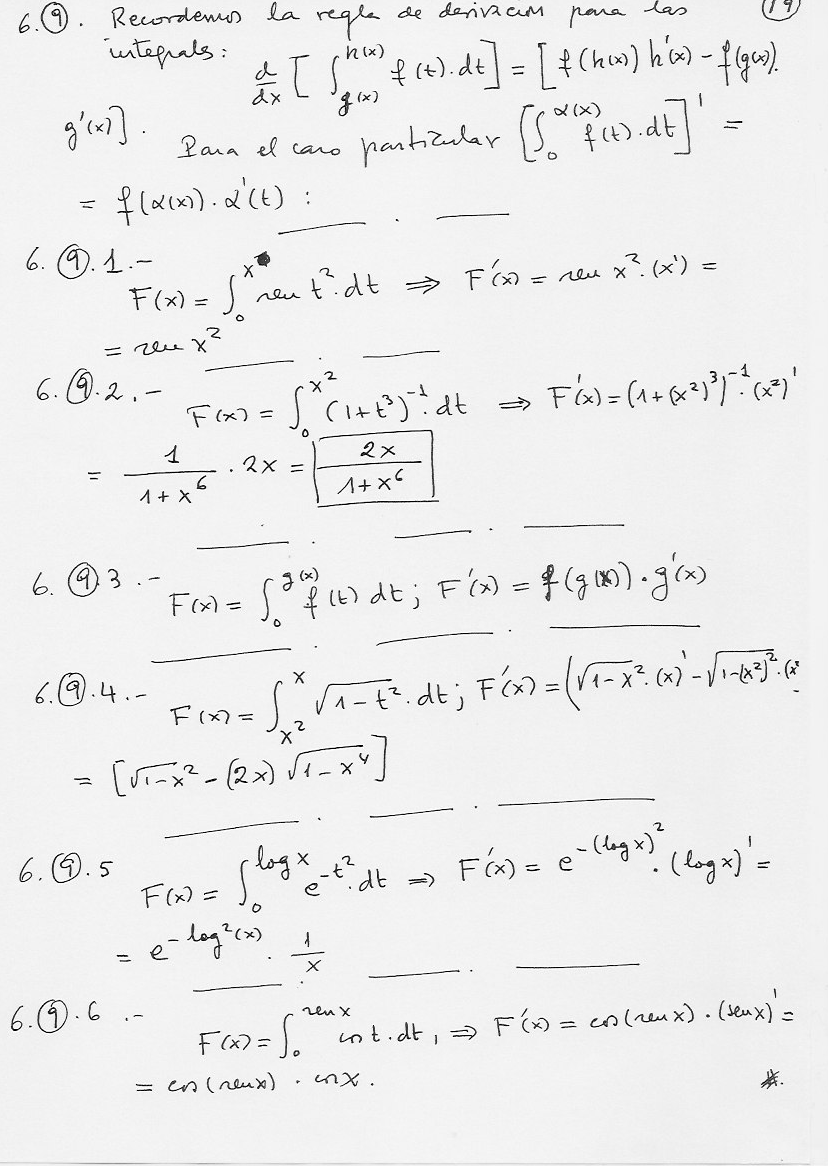 19
6.⑨. Recordemos la regla de derivacion para las
integrals: d/dx [ ∫_{g(x)}^{h(x)} f(t).dt ] = [ f(h(x)) h'(x) - f(g(x)).
g'(x) ]. Para el caso particular [ ∫_0^{α(x)} f(t).dt ]' =
= f(α(x)). α'(t) :
6.⑨.1.-
F(x) = ∫_0^x sen t².dt ⇒ F'(x) = sen x².(x') =
= sen x²
6.⑨.2.- F(x) = ∫_0^{x²} (1+t³)^{-1}.dt ⇒ F'(x) = (1+(x²)³)^{-1}.(x²)'
= 1/(1+x⁶) . 2x = 2x/(1+x⁶)
6.⑨3.- F(x) = ∫_0^{g(x)} f(t) dt ; F'(x) = f(g(x)).g'(x)
6.⑨.4.- F(x) = ∫_{x²}^x √(1-t²).dt ; F'(x) = (√(1-x²).(x)' - √(1-(x²)²).(x²
= [√(1-x²) - (2x) √(1-x⁴)]
6.⑨.5 F(x) = ∫_0^{log x} e^{-t²}.dt ⇒ F'(x) = e^{-(log x)²}.(log x)' =
= e^{-log²(x)} . 1/x
6.⑨.6.- F(x) = ∫_0^{sen x} cos t.dt, ⇒ F'(x) = cos(sen x).(sen x)' =
= cos(sen x) . cos x .